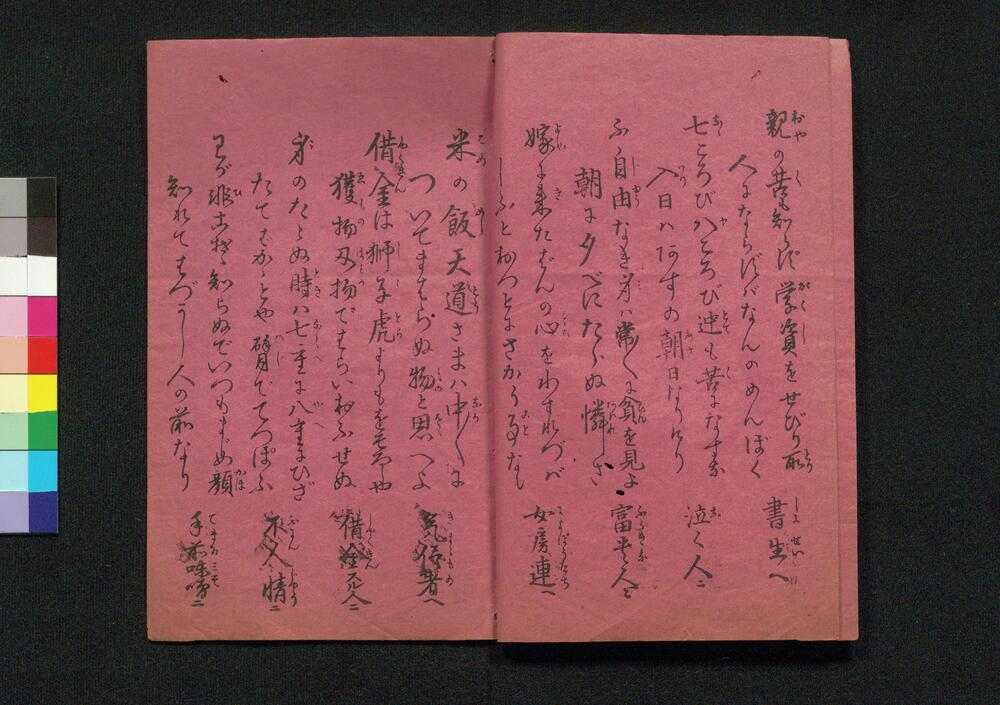 親の苦も知らず学資をせびり取 書生へ
人にならずばなんのめんぼく
七ころび八ころび迚も苦になすな 泣く人ニ
入日ハあすの朝日なりけり
不自由なき身ハ常〳〵に貧を見よ 富
朝に夕べにたらぬ憐れさ
嫁に来たばんの心をわすれづバ 女房連へ
しうとおつとにさかうる事なし
米の飯天道さまハ中〳〵に 者へ
ついてまわらぬ物と思へよ
借金は獅子虎よりもをそろしや 借金
獲物刃物でまらいおふせぬ
身のたらぬ時ハ七重に八重にひざ 不人情ニ
たてむかとや臂でてつぽふ
わが非こそ知らぬでいつもまじめ顔 手前味噌ニ
知れてはづかし人の前なり